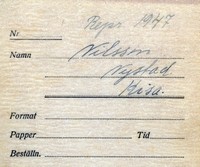 Repr. 1947
Nr
Namn Nilsson
Nystad
Kisa.
Format
Papper Tid
Beställn.